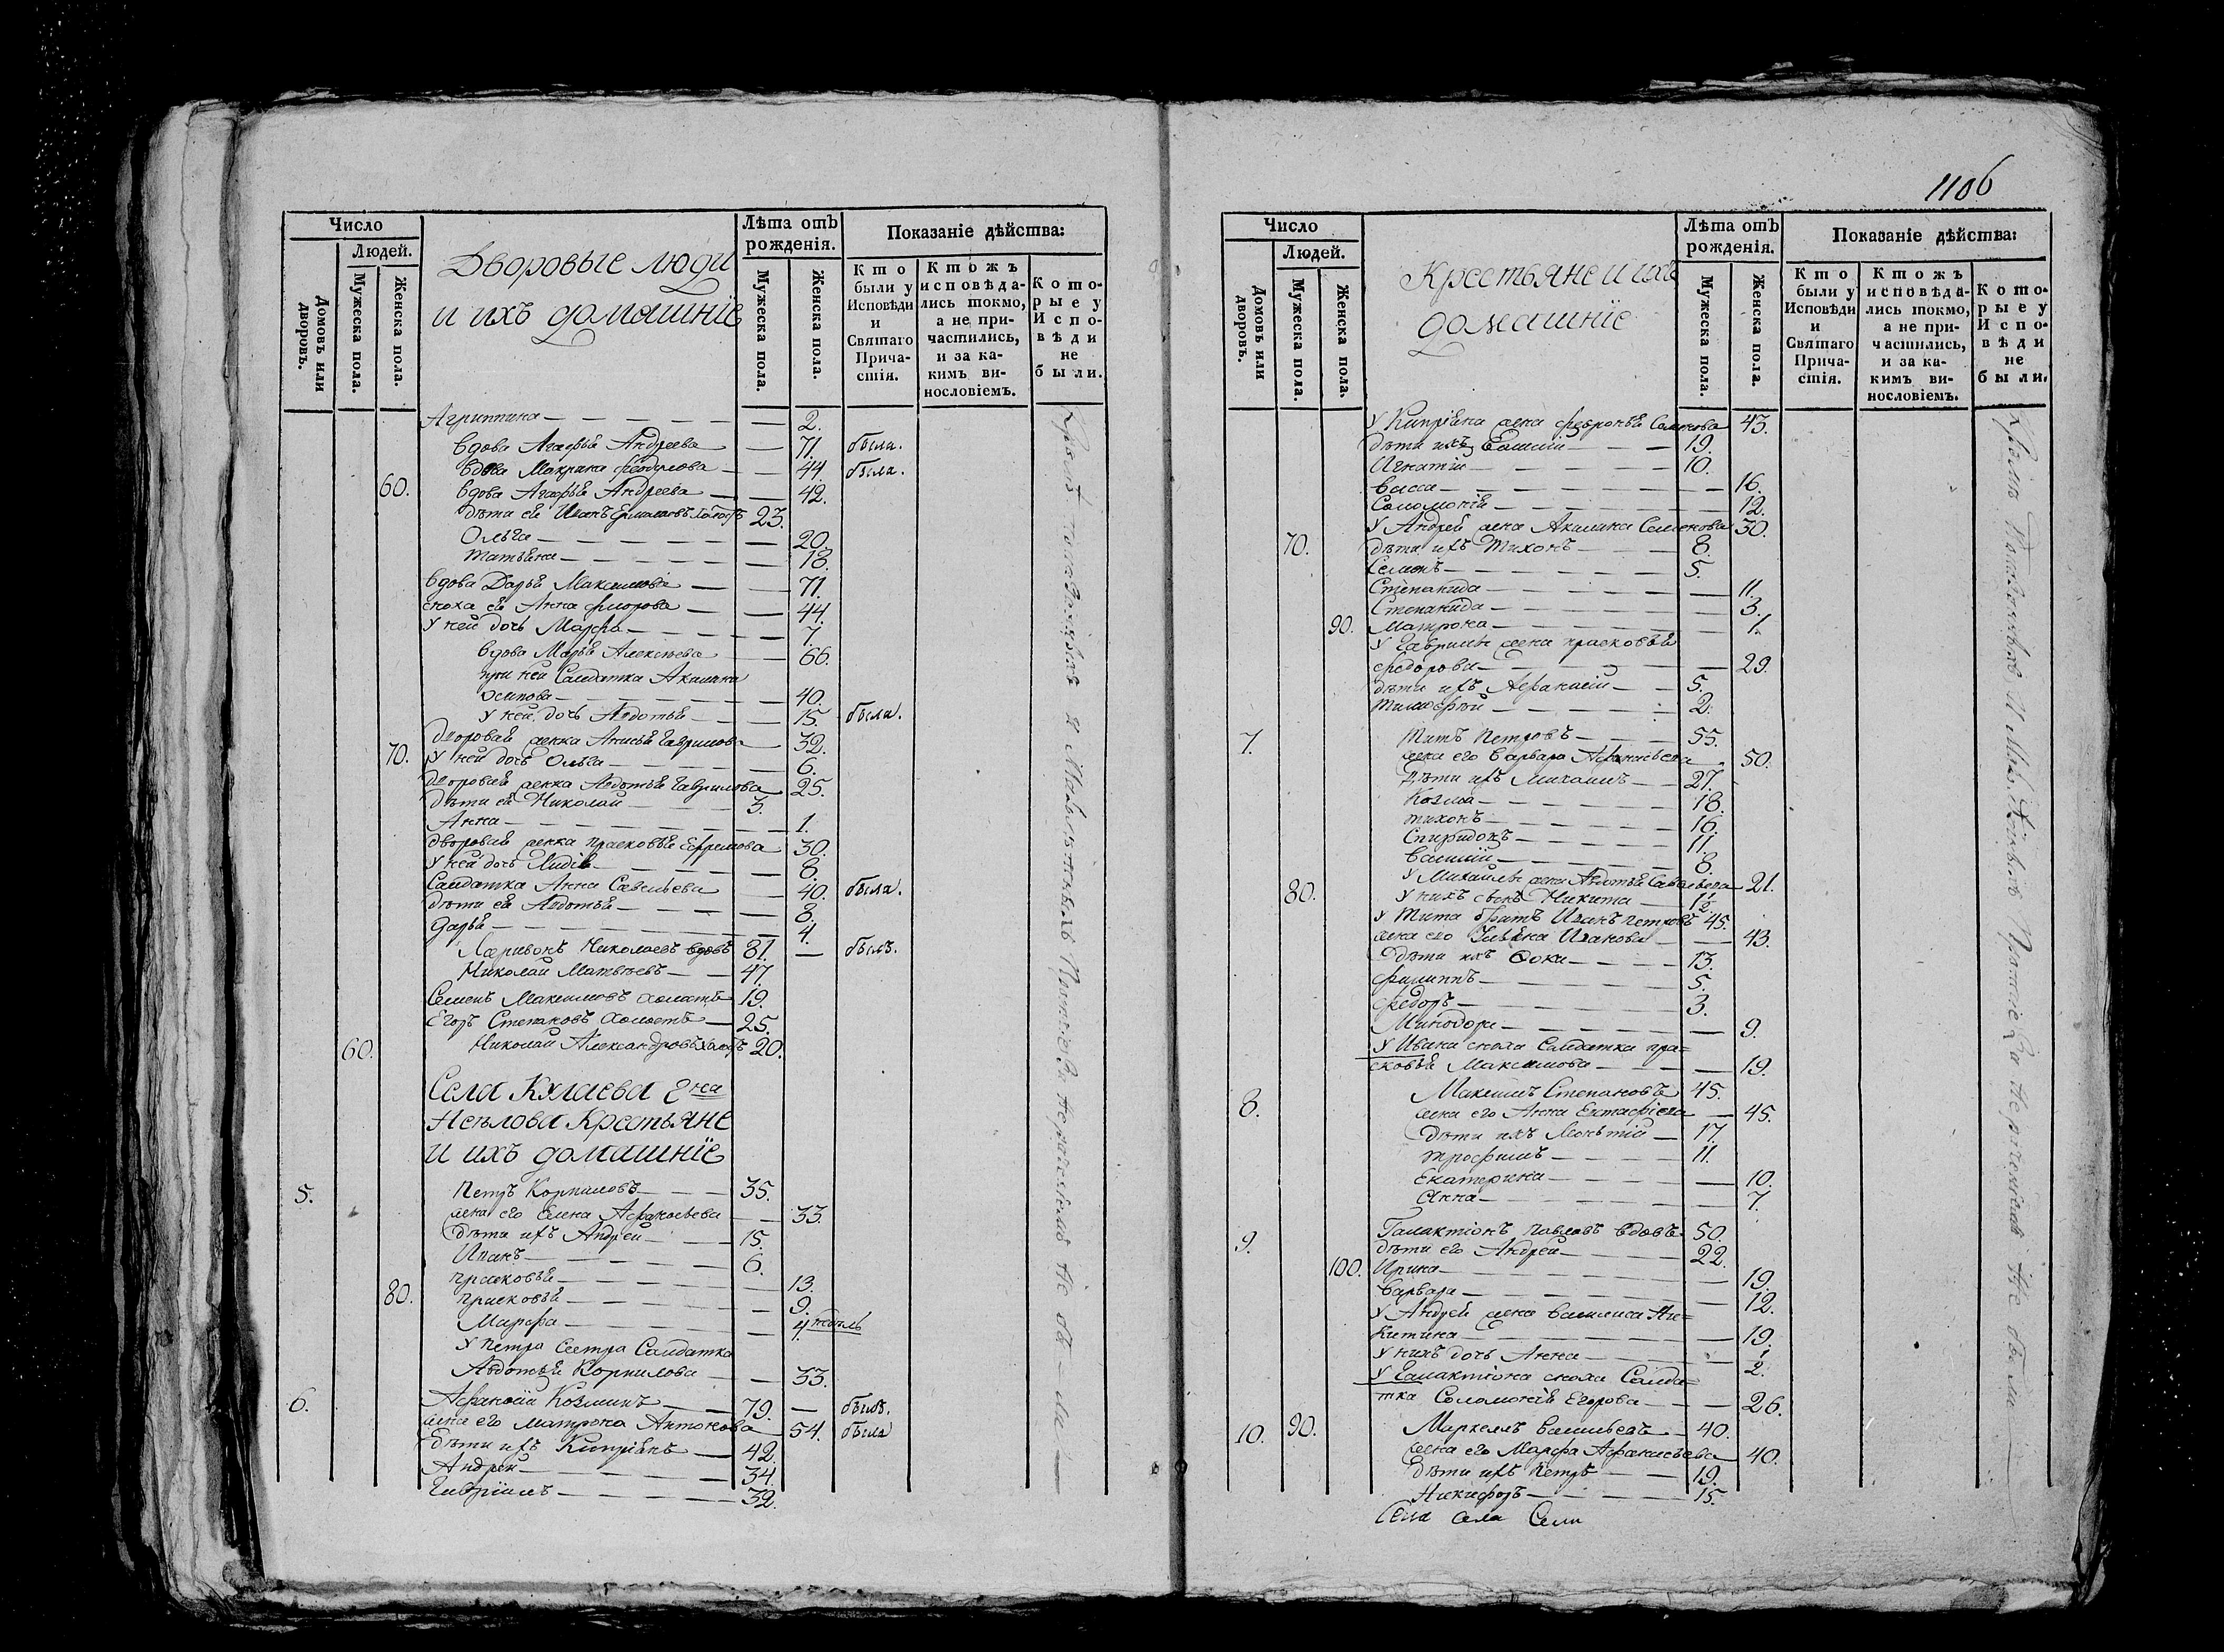 Число
Людей.
Домовъ или дворовъ.
Мужеска пола.
Женска пола.
Дворовые люди
и ихъ домашнïе
Лѣта отъ рожденія.
Мужеска пола.
Женска пола.
Показаніе дѣйства:
Кто были у Исповѣди и Святаго Причастія.
Ктожъ исповѣдались токмо, а не причастились, и за какимъ винословіемъ.
Которые у Исповѣди не были.
Агриппина — 2.
вдова Агафья Андреева — 71. была.
вдова Макрина Феодулова — 44. была.
60. вдова Агафья Андреева — 42.
дѣти ея Иванъ 23.
Ольга — 20.
Татьяна — 18.
вдова Дарья Максимова — 71.
сноха ея Анна — 44.
у ней дочь Марфа — 7.
вдова Марья Алексѣева — 66.
при ней Салдатка Акилина
Осипова — 40.
у ней дочь Авдотья — 15. была.
дворовая женка Анисья Гаврилова — 32.
70. у ней дочь Ольга — 6.
дворовая женка Авдотья Гаврилова 25.
дѣти ея Николай — 3.
Анна — 1.
дворовая женка Прасковья Ефремова 30.
у ней дочь Лидія — 8.
Салдатка Анна Савельева — 40. была.
дѣти ея Авдотья — 8.
Дарья — 4.
Ларивонъ Николаевъ вдовъ 81. — былъ.
Николай Матвѣевъ — 47.
Семенъ Максимовъ холостъ 19.
Егоръ Степановъ холостъ — 25.
60. Николай Александровъ холостъ 20.
Села
Крестьяне
и ихъ домашнïе
5. Петръ Корниловъ — 35.
жена его Елена Афанасьева — 33.
дѣти ихъ Андрей — 15.
Иванъ — 6.
Прасковья — 13.
80. Прасковья — 9.
Марфа — 4 недѣль
У Петра Сестра Салдатка
Авдотья Корнилова — 33.
6. Афанасій Козминъ — 79. — былъ.
жена его Матрона Антонова 54. была
дѣти ихъ Кипріянъ — 42.
Андрей — 34.
Гавріилъ — 32.
1106
Число
Людей.
Домовъ или дворовъ.
Мужеска пола.
Женска пола.
Крестьяне и ихъ
домашнïе
Лѣта отъ рожденія.
Мужеска пола.
Женска пола.
Показаніе дѣйства:
Кто были у Исповѣди и Святаго Причастія.
Ктожъ исповѣдались токмо, а не причастились, и за какимъ винословіемъ.
Которые у Исповѣди не были.
У Кипріяна жена Февронья Семенова 43.
дѣти ихъ 19.
Игнатій — 10.
Васса — 16.
Соломонія — 12.
У Андрея жена Акилина Семенова 30.
70. дѣти ихъ Тихонъ — 8.
Семенъ — 5.
Степанида — 11.
Степанида — 3.
90. Матрона — 1.
У Гаврилы жена Прасковья
Федорова — 29.
дѣти ихъ Афанасій — 5.
Тимофѣй — 2.
7. Титъ Петровъ — 55.
жена его Варвара Афанасьева 50.
Дѣти ихъ Михаилъ — 27.
Козма — 18.
Тихонъ — 16.
Спиридонъ — 11.
Василій — 8.
У Михайлы жена Авдотья Савельева 21.
80. у нихъ сынъ Никита — 1½
У Тита братъ Иванъ Петровъ 45.
жена его Ульяна Иванова — 43.
дѣти ихъ Фока — 13.
Филиппъ — 5.
Федоръ — 3.
Минодора — 9.
У Ивана сноха Салдатка Пра=
сковья Максимова — 19.
8. Максимъ Степановъ 45.
жена его Анна Евстафіева — 45.
дѣти ихъ — 17.
Трофимъ — 11.
Екатерина — 10.
Анна — 7.
9. Галактіонъ Павловъ вдовъ 50.
дѣти его Андрей — 22.
100. Ирина — 19.
Варвара — 12.
У Андрея жена Василиса Ни=
китина — 19.
У нихъ дочь Анна — ½.
У Галактіона сноха Салда=
тка Соломонія Егорова — 26.
10. 90. Маркелъ Васильевъ — 40.
жена его Марфа Афанасьева 40.
дѣти ихъ Петръ — 19.
Никифоръ — 15.
Села